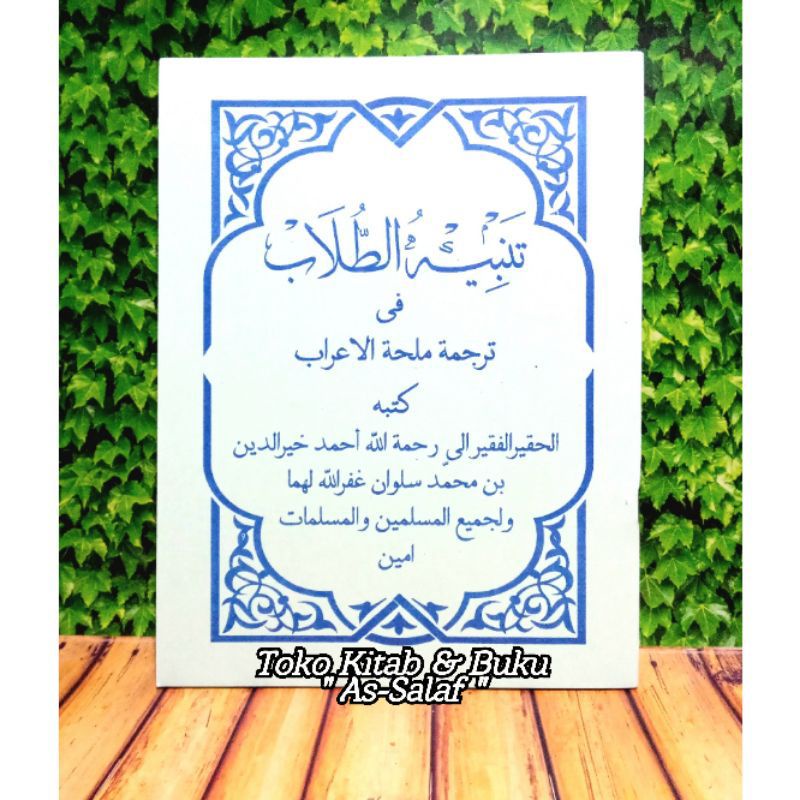 تَنْبِيْهُ الطُّلَابْ
فى
ترجمة ملحة الاعراب
كتبه
الحقير الفقير الى رحمة الله أحمد خير الدين
بن محمّد سلوان غفر الله لهما
ولجميع المسلمين والمسلمات
امين
Toko Kitab & Buku
" As-Salaf "